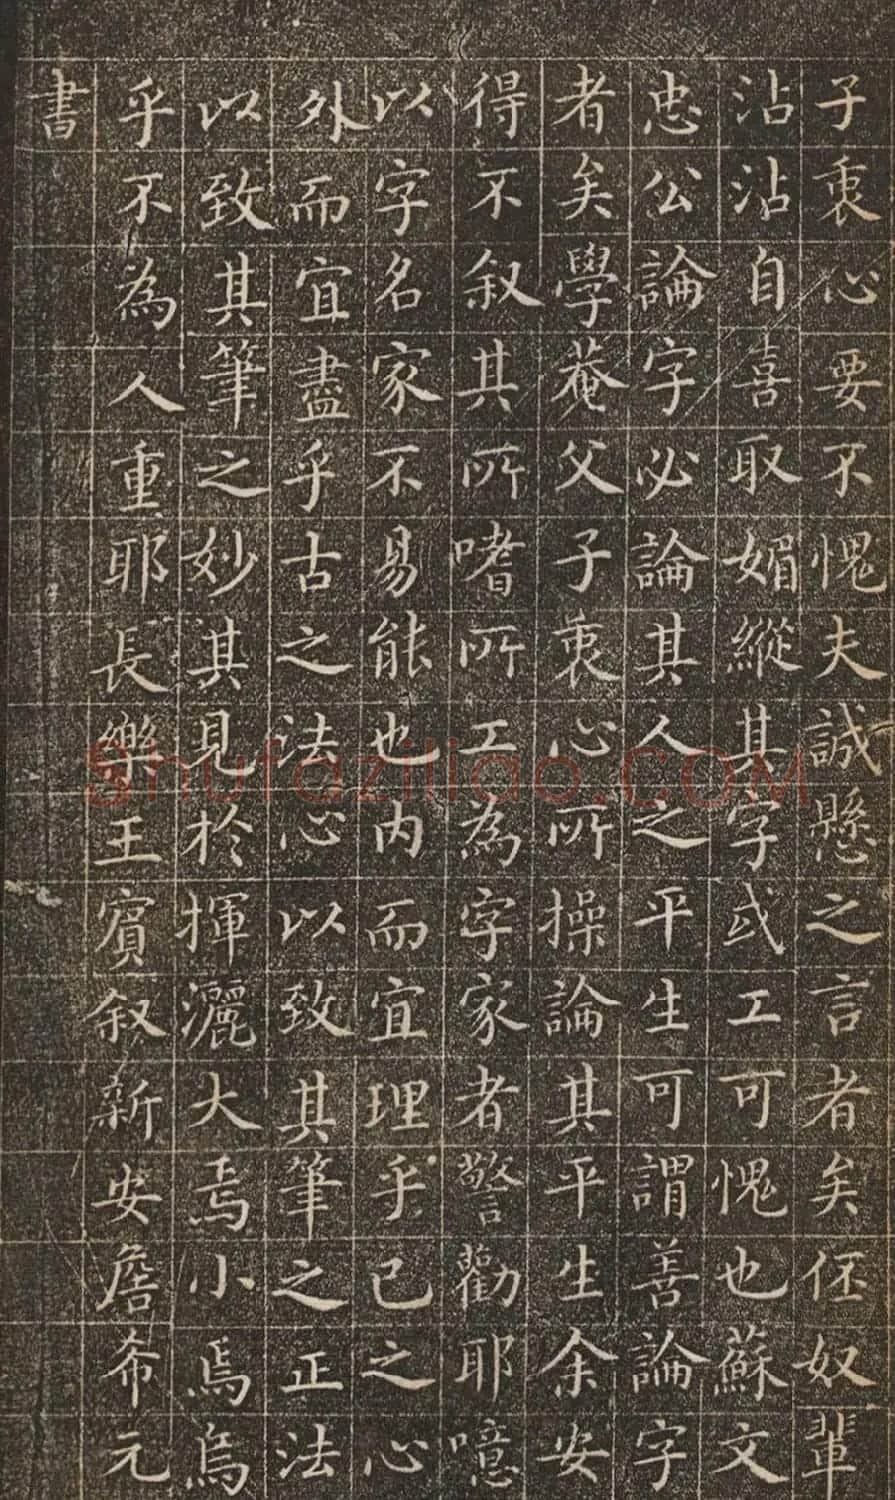 子衷心要不愧夫誠懸之言者矣伾奴輩
沾沾自喜取媚縱其字或工可愧也蘇文
忠公論字必論其人之平生可謂善論字
者矣學菴父子衷心所操論其平生余安
得不叙其所嗜所工為字家者警勸耶噫
以字名家不易能也内而宜理乎己之心
外而宜盡乎古之法心以致其筆之正法
以致其筆之妙其見於揮灑大焉小焉烏
乎不為人重耶長樂王賓叙新安詹希元
書
Shufaziliao.COM